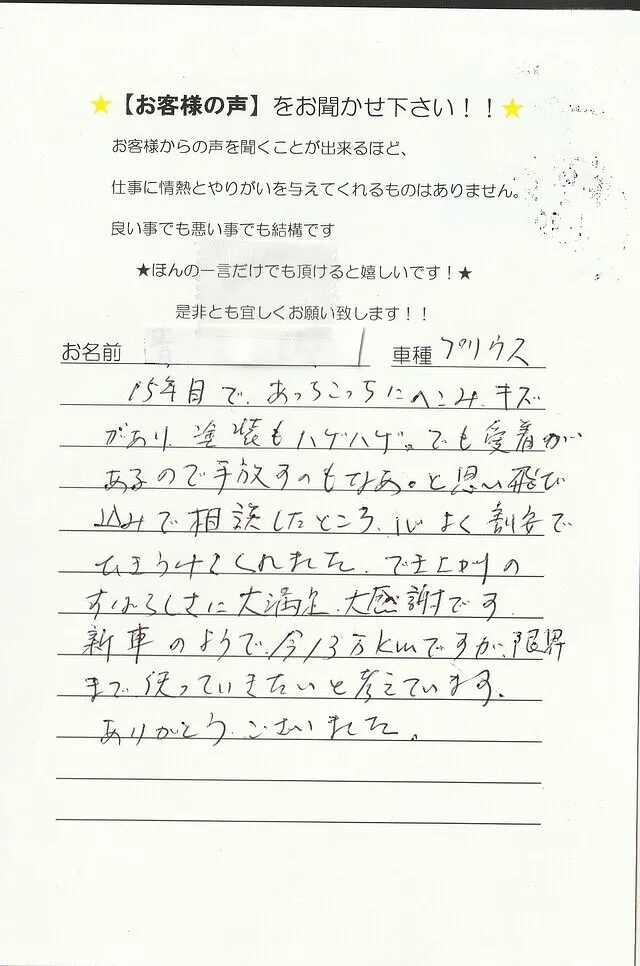 ★【お客様の声】をお聞かせ下さい！！★
お客様からの声を聞くことが出来るほど、
仕事に情熱とやりがいを与えてくれるものはありません。
良い事でも悪い事でも結構です
★ほんの一言だけでも頂けると嬉しいです！★
是非とも宜しくお願い致します！！
お名前 車種 プリウス
15年目で、あっちこっちにヘこみ、キズ
があり、塗装もハゲハゲ。でも愛着が
あるので手放すのもなあ。と思い飛び
込みで相談したところ、心よく割安で
ひきうけてくれました。でき上がりの
すばらしさに大満足、大感謝です。
新車のようで、今13万kmですが、限界
まで使っていきたいと考えています。
ありがとうございました。